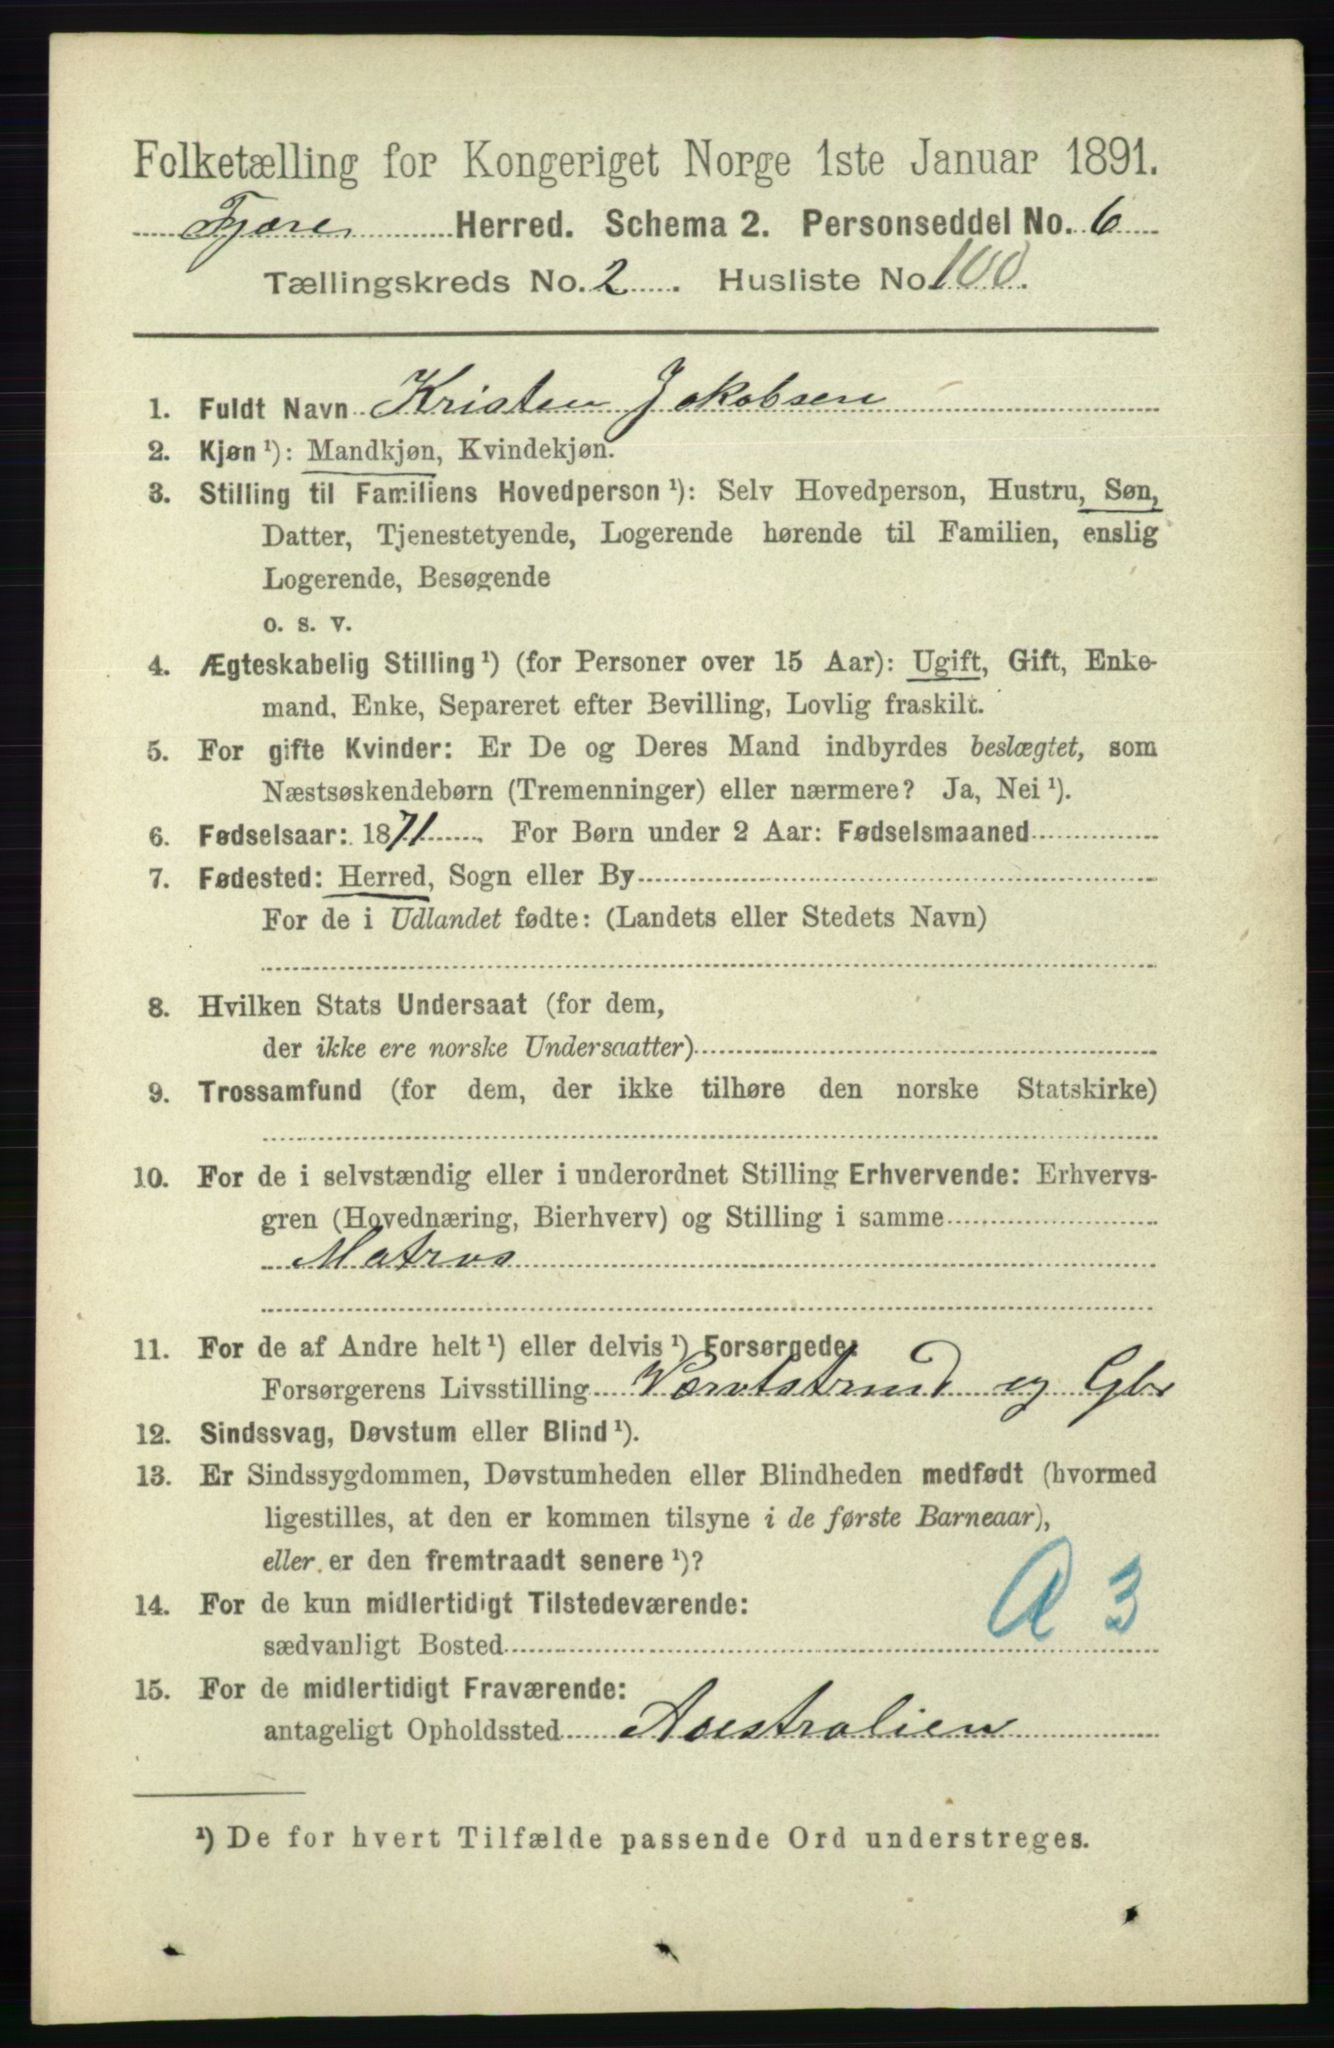 Folketælling for Kongeriget Norge 1ste Januar 1891.
Fjære Herred. Schema 2. Personseddel No. 6
Tællingskreds No. 2. Husliste No. 100.
1. Fuldt Navn Kristen Jakobsen
2. Kjøn¹): Mandkjøn, Kvindekjøn.
3. Stilling til Familiens Hovedperson¹): Selv Hovedperson, Hustru, Søn,
Datter, Tjenestetyende, Logerende hørende til Familien, enslig
Logerende, Besøgende
o. s. v.
4. Ægteskabelig Stilling¹) (for Personer over 15 Aar): Ugift, Gift, Enke-
mand, Enke, Separeret efter Bevilling, Lovlig fraskilt.
5. For gifte Kvinder: Er De og Deres Mand indbyrdes beslægtet, som
Næstsøskendebørn (Tremenninger) eller nærmere? Ja, Nei¹).
6. Fødselsaar: 1871. For Børn under 2 Aar: Fødselsmaaned
7. Fødested: Herred, Sogn eller By
For de i Udlandet fødte: (Landets eller Stedets Navn)
8. Hvilken Stats Undersaat (for dem,
der ikke ere norske Undersaatter)
9. Trossamfund (for dem, der ikke tilhøre den norske Statskirke)
10. For de i selvstændig eller i underordnet Stilling Erhvervende: Erhvervs-
gren (Hovednæring, Bierhverv) og Stilling i samme
Matros
11. For de af Andre helt¹) eller delvis¹) Forsørgede:
Forsørgerens Livsstilling og Gbr
12. Sindssvag, Døvstum eller Blind¹).
13. Er Sindssygdommen, Døvstumheden eller Blindheden medfødt (hvormed
ligestilles, at den er kommen tilsyne i de første Barneaar),
eller er den fremtraadt senere¹)?
14. For de kun midlertidigt Tilstedeværende:
sædvanligt Bosted
A 3
15. For de midlertidigt Fraværende:
antageligt Opholdssted Australien
¹) De for hvert Tilfælde passende Ord understreges.